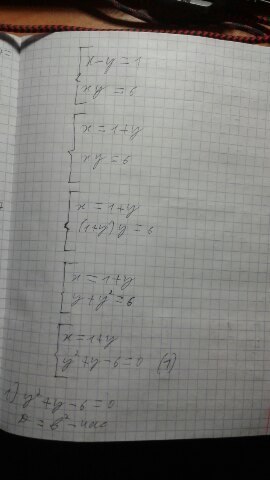 x-y=1
xy=6
x=1+y
xy=6
x=1+y
(1+y)y=6
x=1+y
y+y²=6
x=1+y
y²+y-6=0 (1)
1) y²+y-6=0
D=b²-4ac